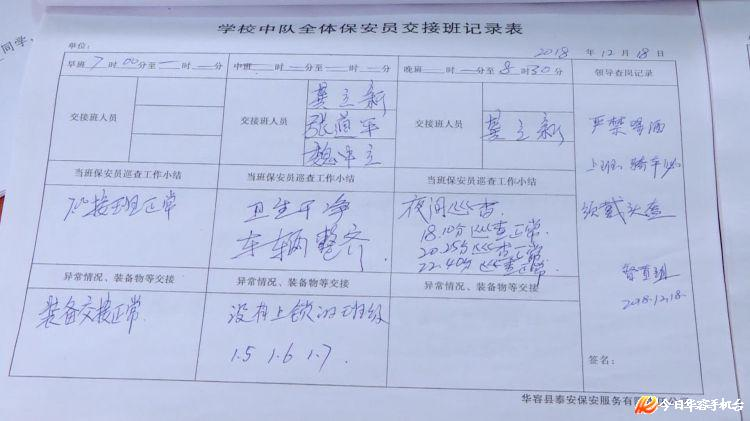 学校中队全体保安员交接班记录表
单位：
2018 年 12 月 18 日
早班 7 时 00 分至 一 时 一 分
中班 一 时 一 分至 一 时 一 分
晚班 一 时 一 分至 8 时 30 分
领导查岗记录
交接班人员
交接班人员
龚立新
张道军
魏中立
交接班人员
龚立新
严禁喝酒
上班、骑车必
须戴头盔
督查组
2018.12.18.
签名：
当班保安员巡查工作小结
当班保安员巡查工作小结
当班保安员巡查工作小结
交接班正常
卫生干净
车辆整齐.
夜间巡查.
18.10分巡查正常.
20.25分巡查正常.
22.40分巡查正常.
异常情况、装备物等交接
异常情况、装备物等交接
异常情况、装备物等交接
装备交接正常.
没有上锁的班级
1.5 1.6 1.7.
华容县泰安保安服务有限
今日华容手机台
同学，